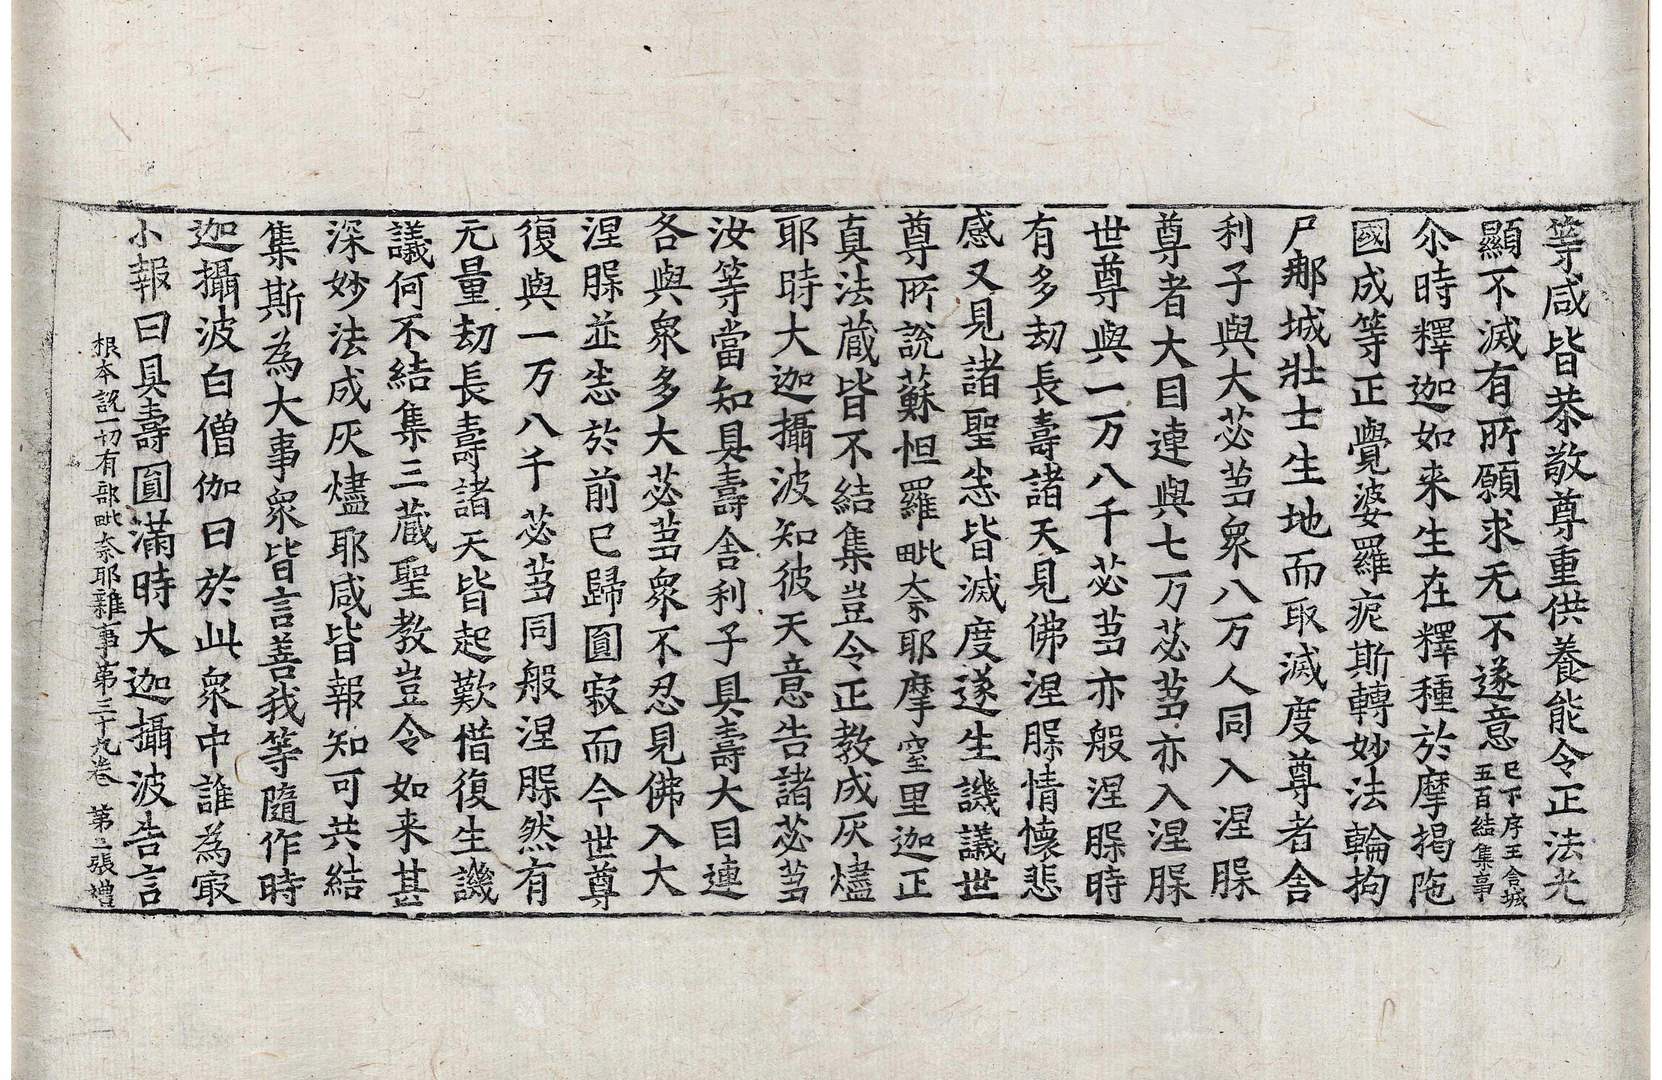 等咸皆恭敬尊重供養能令正法光
顯不滅有所願求无不遂意已下序王舍城五百結集事
尒時釋迦如来生在釋種於摩揭陁
國成等正覺婆羅痆斯轉妙法輪拘
尸那城壯士生地而取滅度尊者舍
利子與大苾芻衆八万人同入涅脲
尊者大目連與七万苾芻亦入涅脲
世尊與一万八千苾芻亦般涅脲時
有多劫長壽諸天見佛涅脲情懷悲
感又見諸聖悉皆滅度遂生譏議世
尊所說蘇怛羅毗奈耶摩窒里迦正
真法蔵皆不結集豈令正教成灰燼
耶時大迦攝波知彼天意告諸苾芻
汝等當知具壽舍利子具壽大目連
各與衆多大苾芻衆不忍見佛入大
涅脲並悉於前已歸圓寂而今世尊
復與一万八千苾芻同般涅脲然有
无量劫長壽諸天皆起歎惜復生譏
議何不結集三蔵聖教豈令如来甚
深妙法成灰燼耶咸皆報知可共結
集斯為大事衆皆言善我等隨作時
迦攝波白僧伽曰於此衆中誰為㝡
小報曰具壽圓滿時大迦攝波告言
根本說一切有部毗奈耶雜事第三十九卷 第二張 禮